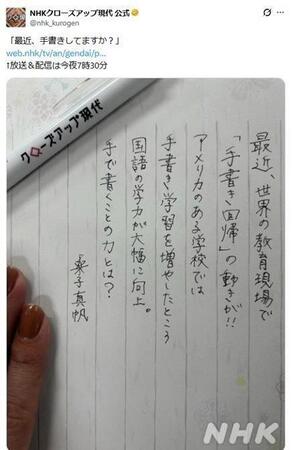 NHKクローズアップ現代 公式
@nhk_kurogen
「最近、手書きしてますか？」
web.nhk/tv/an/gendai/p...
↑放送＆配信は今夜7時30分
クローズアップ現代
最近、世界の教育現場で
「手書き回帰」の動きが!!
アメリカのある学校では
手書き学習を増やしたところ
国語の学力が大幅に向上。
手で書くことの力とは？
桑子真帆
NHK